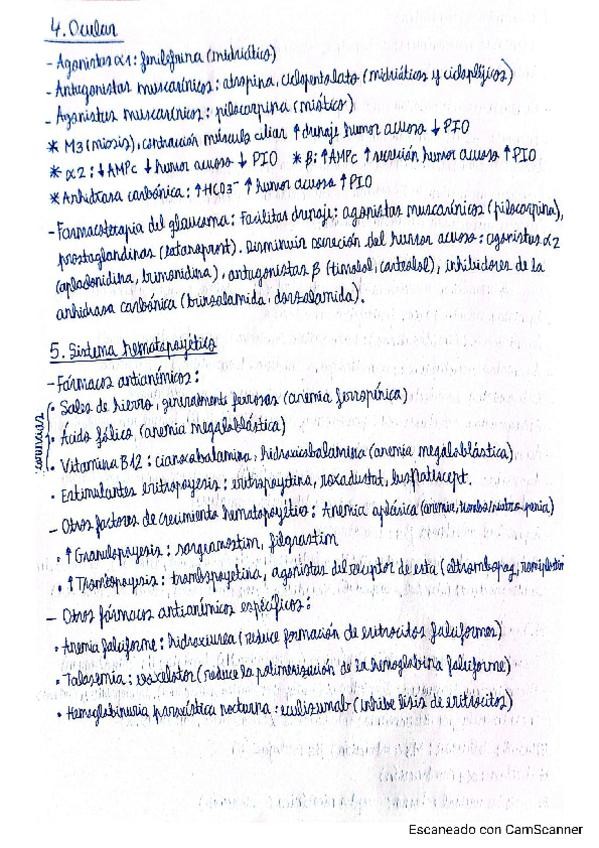 4. Ocular
- Agonistas α1: fenilefrina (midriático)
- Antagonistas muscarínicos: atropina, ciclopentolato (midriáticos y ciclopléjicos)
- Agonistas muscarínicos: pilocarpina (miótico)
* M3 (miosis), contracción músculo ciliar ↑ drenaje humor acuoso ↓ PIO
* α2: ↓AMPc ↓ humor acuoso ↓ PIO * β: ↑AMPc ↑ secreción humor acuoso ↑ PIO
* Anhidrasa carbónica: ↑HCO3⁻ ↑ humor acuoso ↑ PIO
- Farmacoterapia del glaucoma: Facilitar drenaje: agonistas muscarínicos (pilocarpina),
prostaglandinas (latanoprost). Disminuir secreción del humor acuoso: agonistas α2
(apraclonidina, brimonidina), antagonistas β (timolol, carteolol), inhibidores de la
anhidrasa carbónica (brinzolamida, dorzolamida).
5. Sistema hematopoyético
- Fármacos antianémicos:
• Sales de hierro, generalmente ferrosas (anemia ferropénica)
• Ácido fólico (anemia megaloblástica)
• Vitamina B12: cianocobalamina, hidroxicobalamina (anemia megaloblástica)
• Estimulantes eritropoyesis: eritropoyetina, roxadustat, luspatercept.
- Otros factores de crecimiento hematopoyético: Anemia aplásica (anemia, trombo/neutropenia)
• ↑ Granulopoyesis: sargramostim, filgrastim
• ↑ Trombopoyesis: trombopoyetina, agonistas del receptor de esta (eltrombopag, romiplostim
- Otros fármacos antianémicos específicos:
• Anemia falciforme: hidroxiurea (reduce formación de eritrocitos falciformes)
• Talasemia: voxelotor (reduce la polimerización de la hemoglobina falciforme)
• Hemoglobinuria paroxística nocturna: eculizumab (inhibe lisis de eritrocitos)
Escaneado con CamScanner